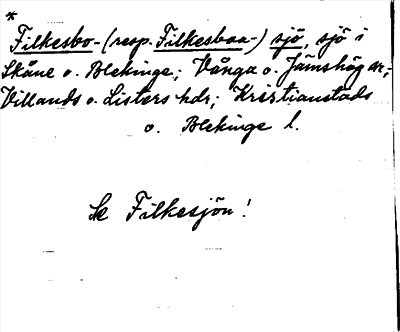 *
Filkesbo- (resp. Filkesboa-) sjö, sjö i
Skåne o. Blekinge; Vånga o. Jämshög snr;
Villands o. Listers hdr; Kristianstads
o. Blekinge l.
Se Filkesjön!